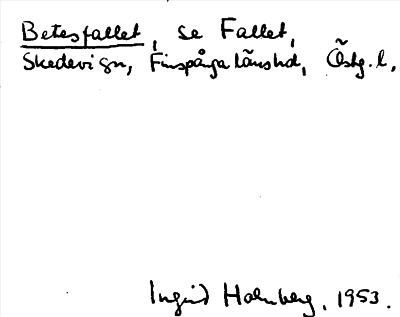 Betesfallet, se Fallet,
Skedevi sn, Finspånga länshd, Östg. l,
Ingrid Holmberg, 1953.